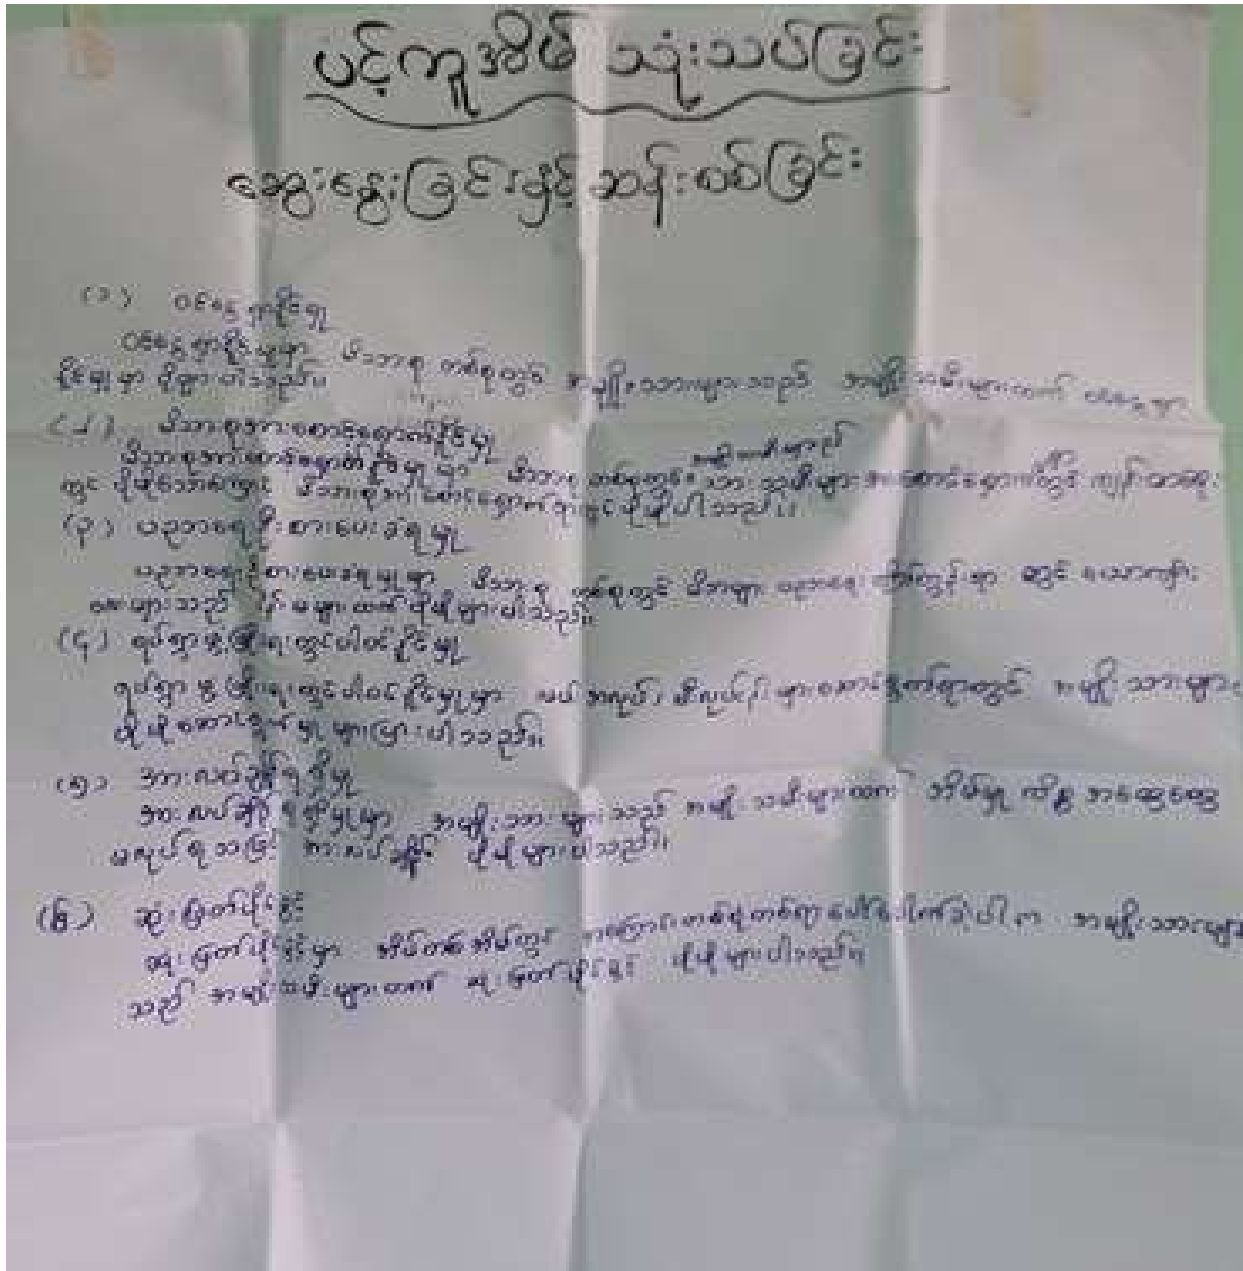 ပင့်ကူအိမ် သုံးသပ်ခြင်း
ဆွေးနွေးခြင်းနှင့် ဆန်းစစ်ခြင်း
(၁) ဝင်ငွေရှာနိုင်မှု
ဝင်ငွေရှာနိုင်မှုမှာ မိသားစု တစ်စုတွင် အမျိုးသားများသည် အမျိုးသမီးများထက် ဝင်ငွေရှာ
နိုင်မှုမှာ ပိုများပါသည်။
(၂) မိသားစုအားစောင့်ရှောက်နိုင်မှု
အမျိုးသမီးများသည်
မိသားစုအားစောင့်ရှောက်နိုင်မှုမှာ မိသားစုတစ်စုတွင် သား သမီးများအားစောင့်ရှောက်ရာတွင် ကျန်းမာရေး
တွင် ပိုမိုသောကြောင့် မိသားစုအားစောင့်ရှောက် ပိုမိုပါသည်။
(၃) ပညာရေဦးစားပေးခံရမှု
ပညာရေးဦးစားပေးခံရမှုမှာ မိသားစု တစ်စုတွင် မိဘများ ပညာရေး တွင် ယောကျာ်း
လေးများသည် မိန်းမများထက် ပိုမိုများပါသည်။
(၄) ရပ်ရွာဖွံ့ဖြိုးရေးတွင်ပါဝင်နိုင်မှု
ရပ်ရွာဖွံ့ဖြိုးရေးတွင်ပါဝင်နိုင်မှုမှာ များဆောင်ရွက်ရာတွင် အမျိုးသားများ
ပိုမိုဆောင်ရွက်မှု များပြားပါသည်။
(၅) အားလပ်ချိန်ရရှိမှု
အားလပ်ချိန်ရရှိမှုမှာ အမျိုးသားများသည် အမျိုးသမီးများထက် အိမ်မှု ကိစ္စ အထွေထွေ
မလုပ်ရသဖြင့် အားလပ်ချိန် ပိုမိုများပါသည်။
(၆) ဆုံးဖြတ်ပိုင်ခွင့်
ဆုံးဖြတ်ပိုင်ခွင့်မှာ အိမ်တစ်အိမ်တွင် အကြောင်းတစ်စုံတစ်ရာပေါ်ပေါက်ခဲ့ပါက အမျိုးသားများ
သည် အမျိုးသမီးများထက် ဆုံးဖြတ်ပိုင်ခွင့် ပိုမိုများပါသည်။